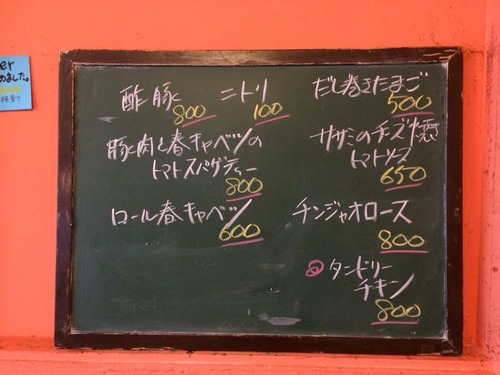 酢豚 800
ニトリ 100
豚肉と春キャベツの
トマトスパゲティー
800
ロール春キャベツ
600
だし巻きたまご
500
ササミのチーズ焼き
トマトソース
650
チンジャオロース
800
タンドリー
チキン
800
er
めました。